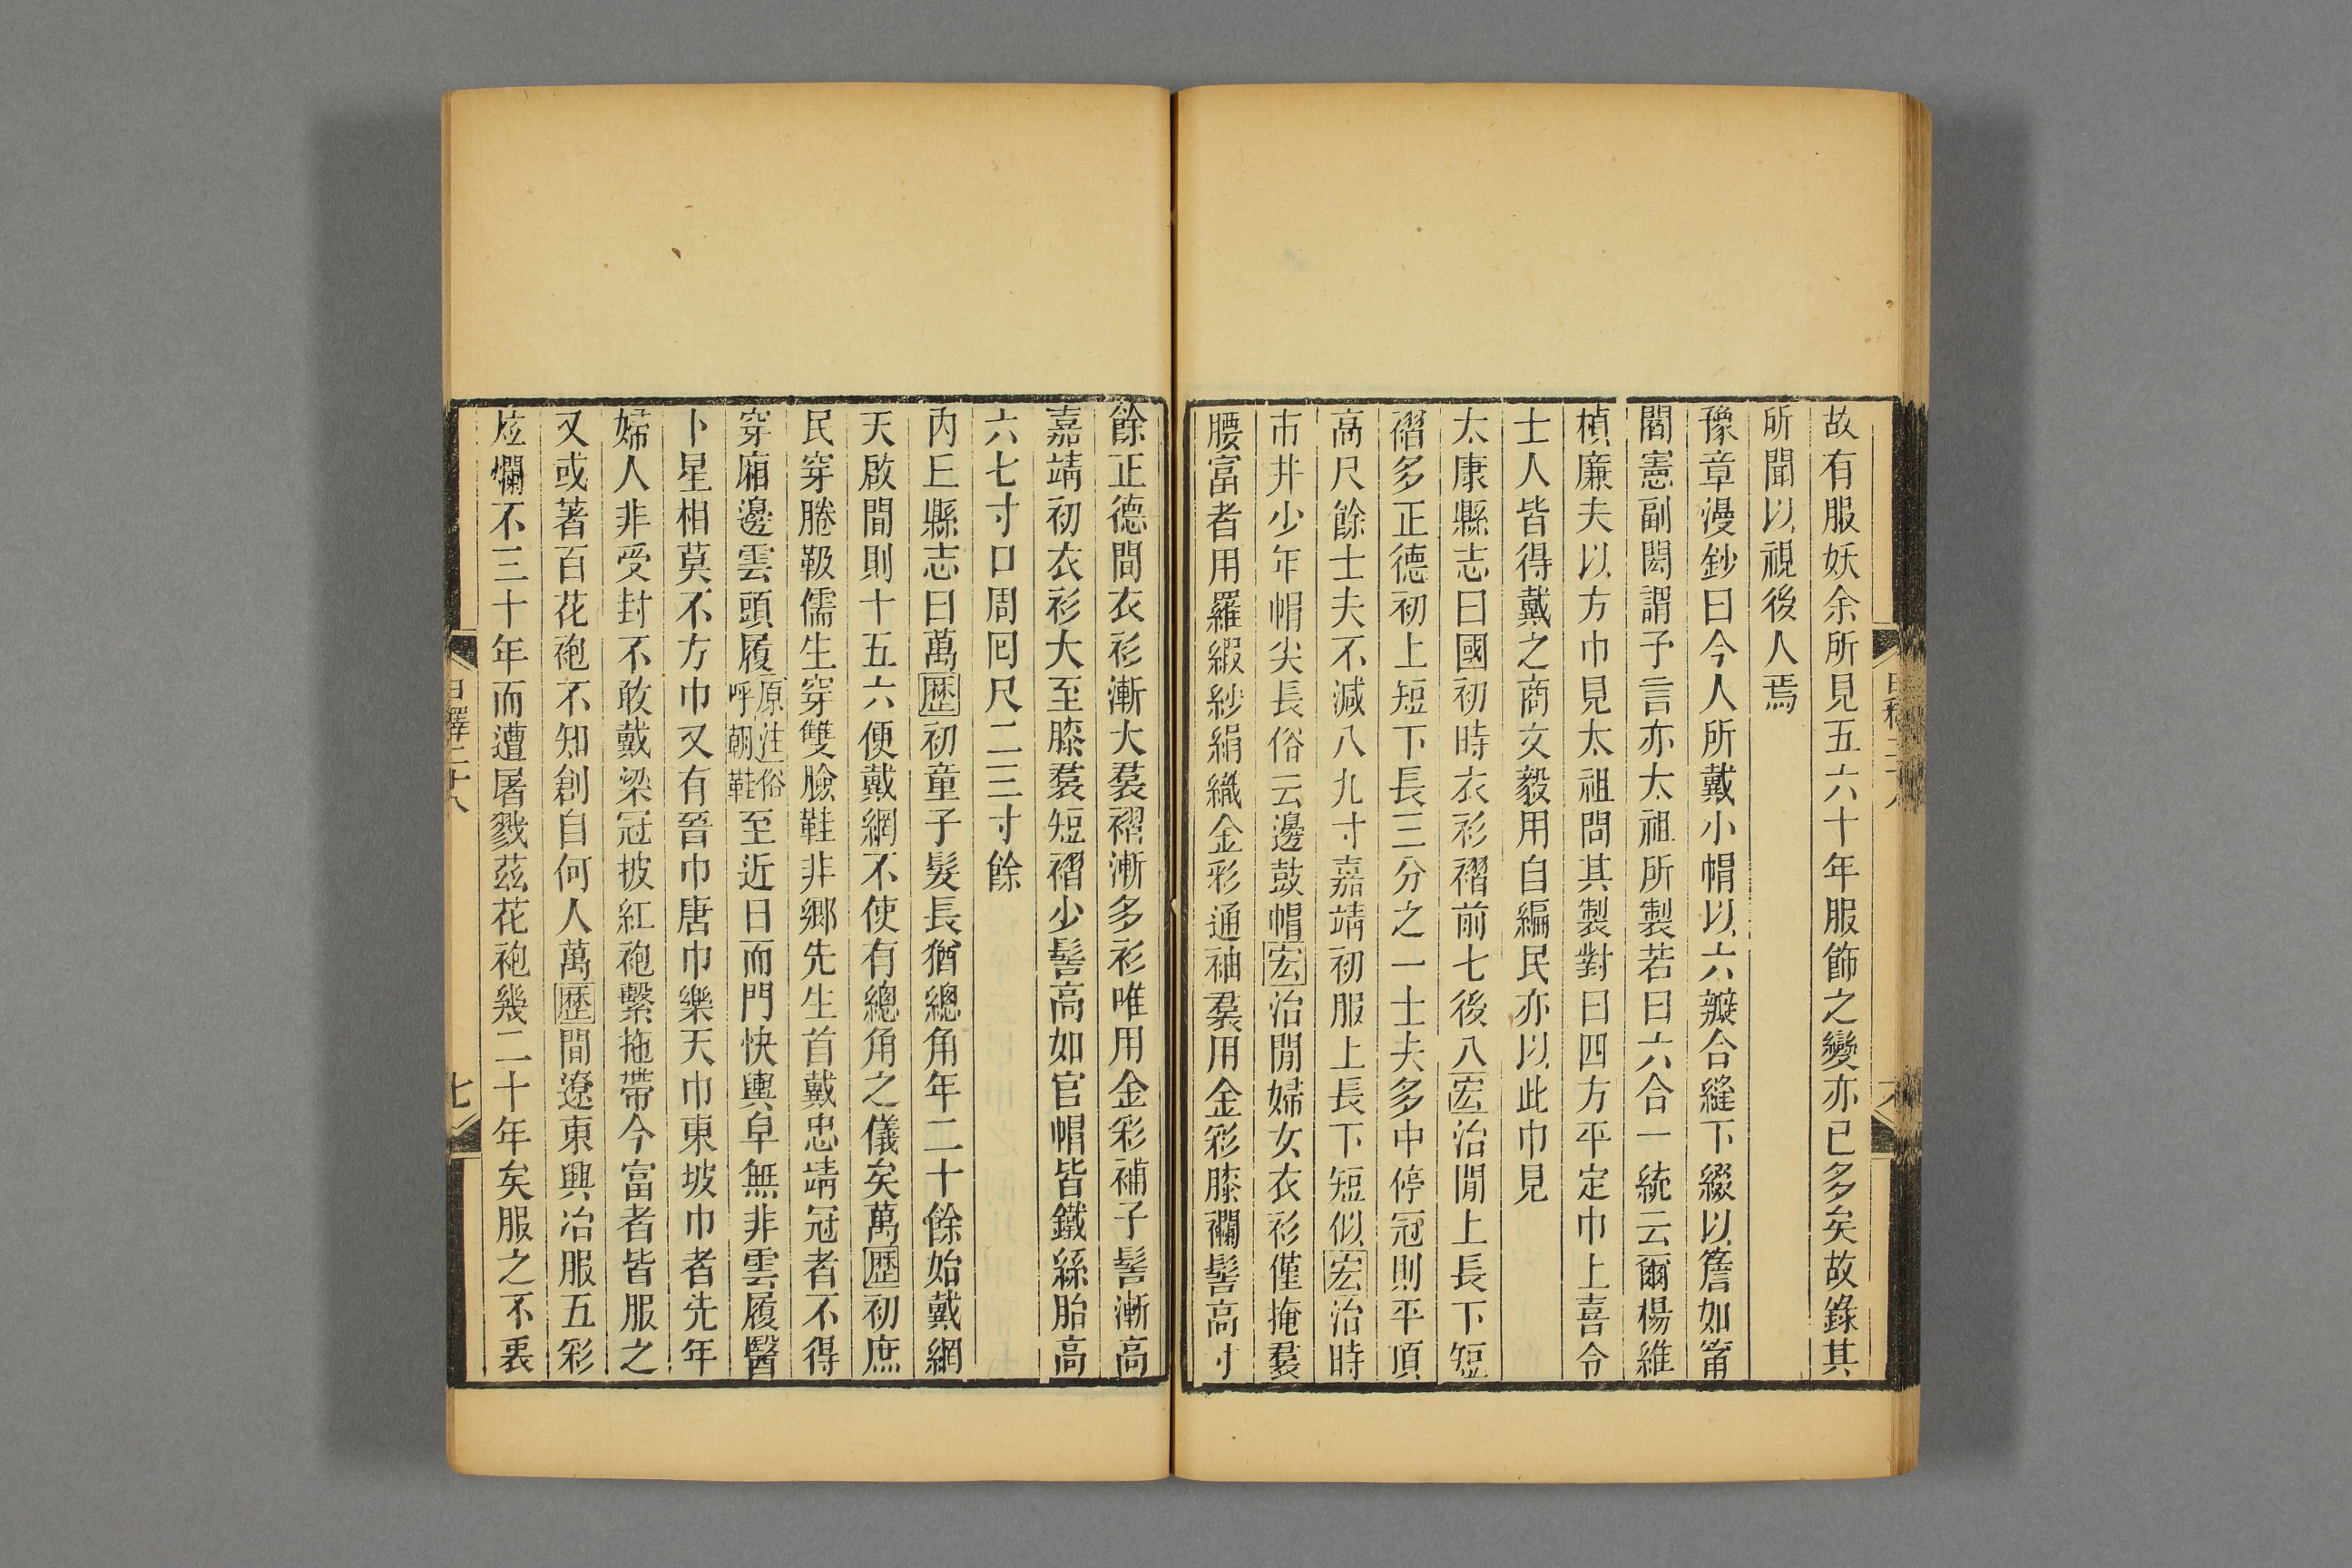 故有服妖余所見五六十年服飾之變亦已多矣故錄其
所聞以視後人焉
豫章漫鈔曰今人所戴小帽以六瓣合縫下綴以簷如筩
閻憲副閎謂予言亦太祖所製若曰六合一統云爾楊維
楨廉夫以方巾見太祖問其製對曰四方平定巾上喜令
士人皆得戴之商文毅用自編民亦以此巾見
太康縣志曰國初時衣衫褶前七後八宏治閒上長下短
褶多正德初上短下長三分之一士夫多中停冠則平頂
高尺餘士夫不減八九寸嘉靖初服上長下短似宏治時
市井少年帽尖長俗云邊鼓帽宏治閒婦女衣衫僅掩裠
腰富者用羅緞紗絹織金彩通袖裠用金彩膝襴髻高寸
餘正德間衣衫漸大裠褶漸多衫唯用金彩補子髻漸高
嘉靖初衣衫大至膝裠短褶少髻高如官帽皆鐵絲胎高
六七寸口周囘尺二三寸餘
內丘縣志曰萬歷初童子髮長猶總角年二十餘始戴網
天啟間則十五六便戴網不使有總角之儀矣萬歷初庶
民穿腃靸儒生穿雙臉鞋非鄉先生首戴忠靖冠者不得
穿廂邊雲頭履原注俗呼朝鞋至近日而門快輿皁無非雲履醫
卜星相莫不方巾又有晉巾唐巾樂天巾東坡巾者先年
婦人非受封不敢戴梁冠披紅袍繫拖帶今富者皆服之
又或著百花袍不知創自何人萬歷間遼東興冶服五彩
炫爛不三十年而遭屠戮茲花袍幾二十年矣服之不衷
日釋二十八
七